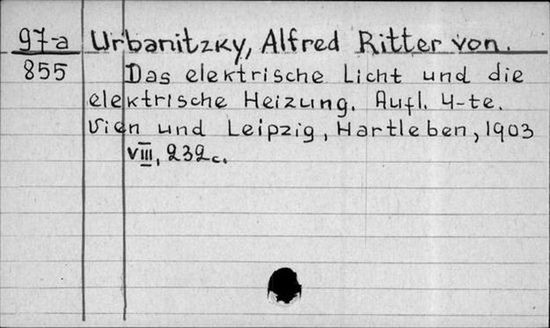 97-a Urbanitzky, Alfred Ritter von.
855 Das elektrische Licht und die
elektrische Heizung. Aufl. 4-te.
Vien und Leipzig, Hartleben, 1903
VIII, 232 c.